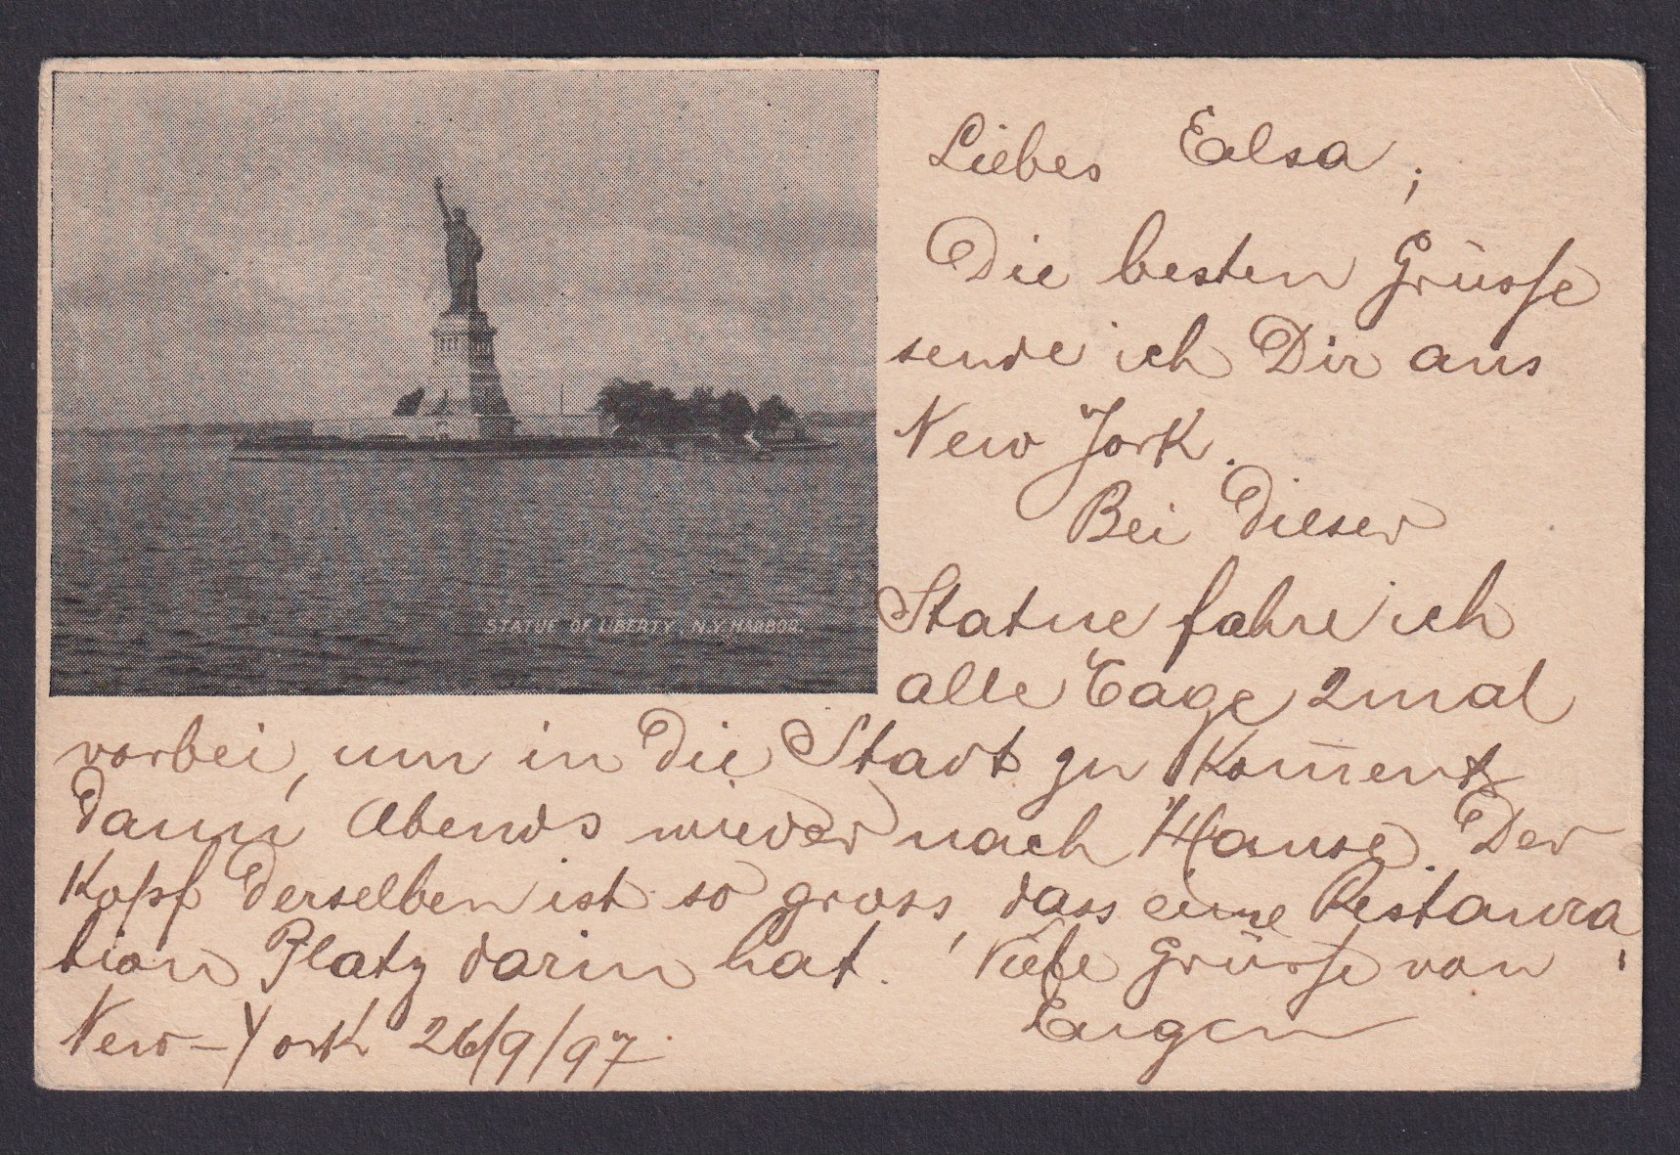 STATUE OF LIBERTY, N.Y. HARBOR.
Liebes Ealsa,
Die besten Grüsse
sende ich Dir aus
New York.
Bei dieser
Statue fahre ich
alle Tage 2mal
vorbei, um in die Stadt zu kom̅en &
dann Abends wieder nach Hause. Der
Kopf derselben ist so gross, dass eine Restaura
tion Platz darin hat. Viele Grüsse von
Eugen
New-York 26/9/97.